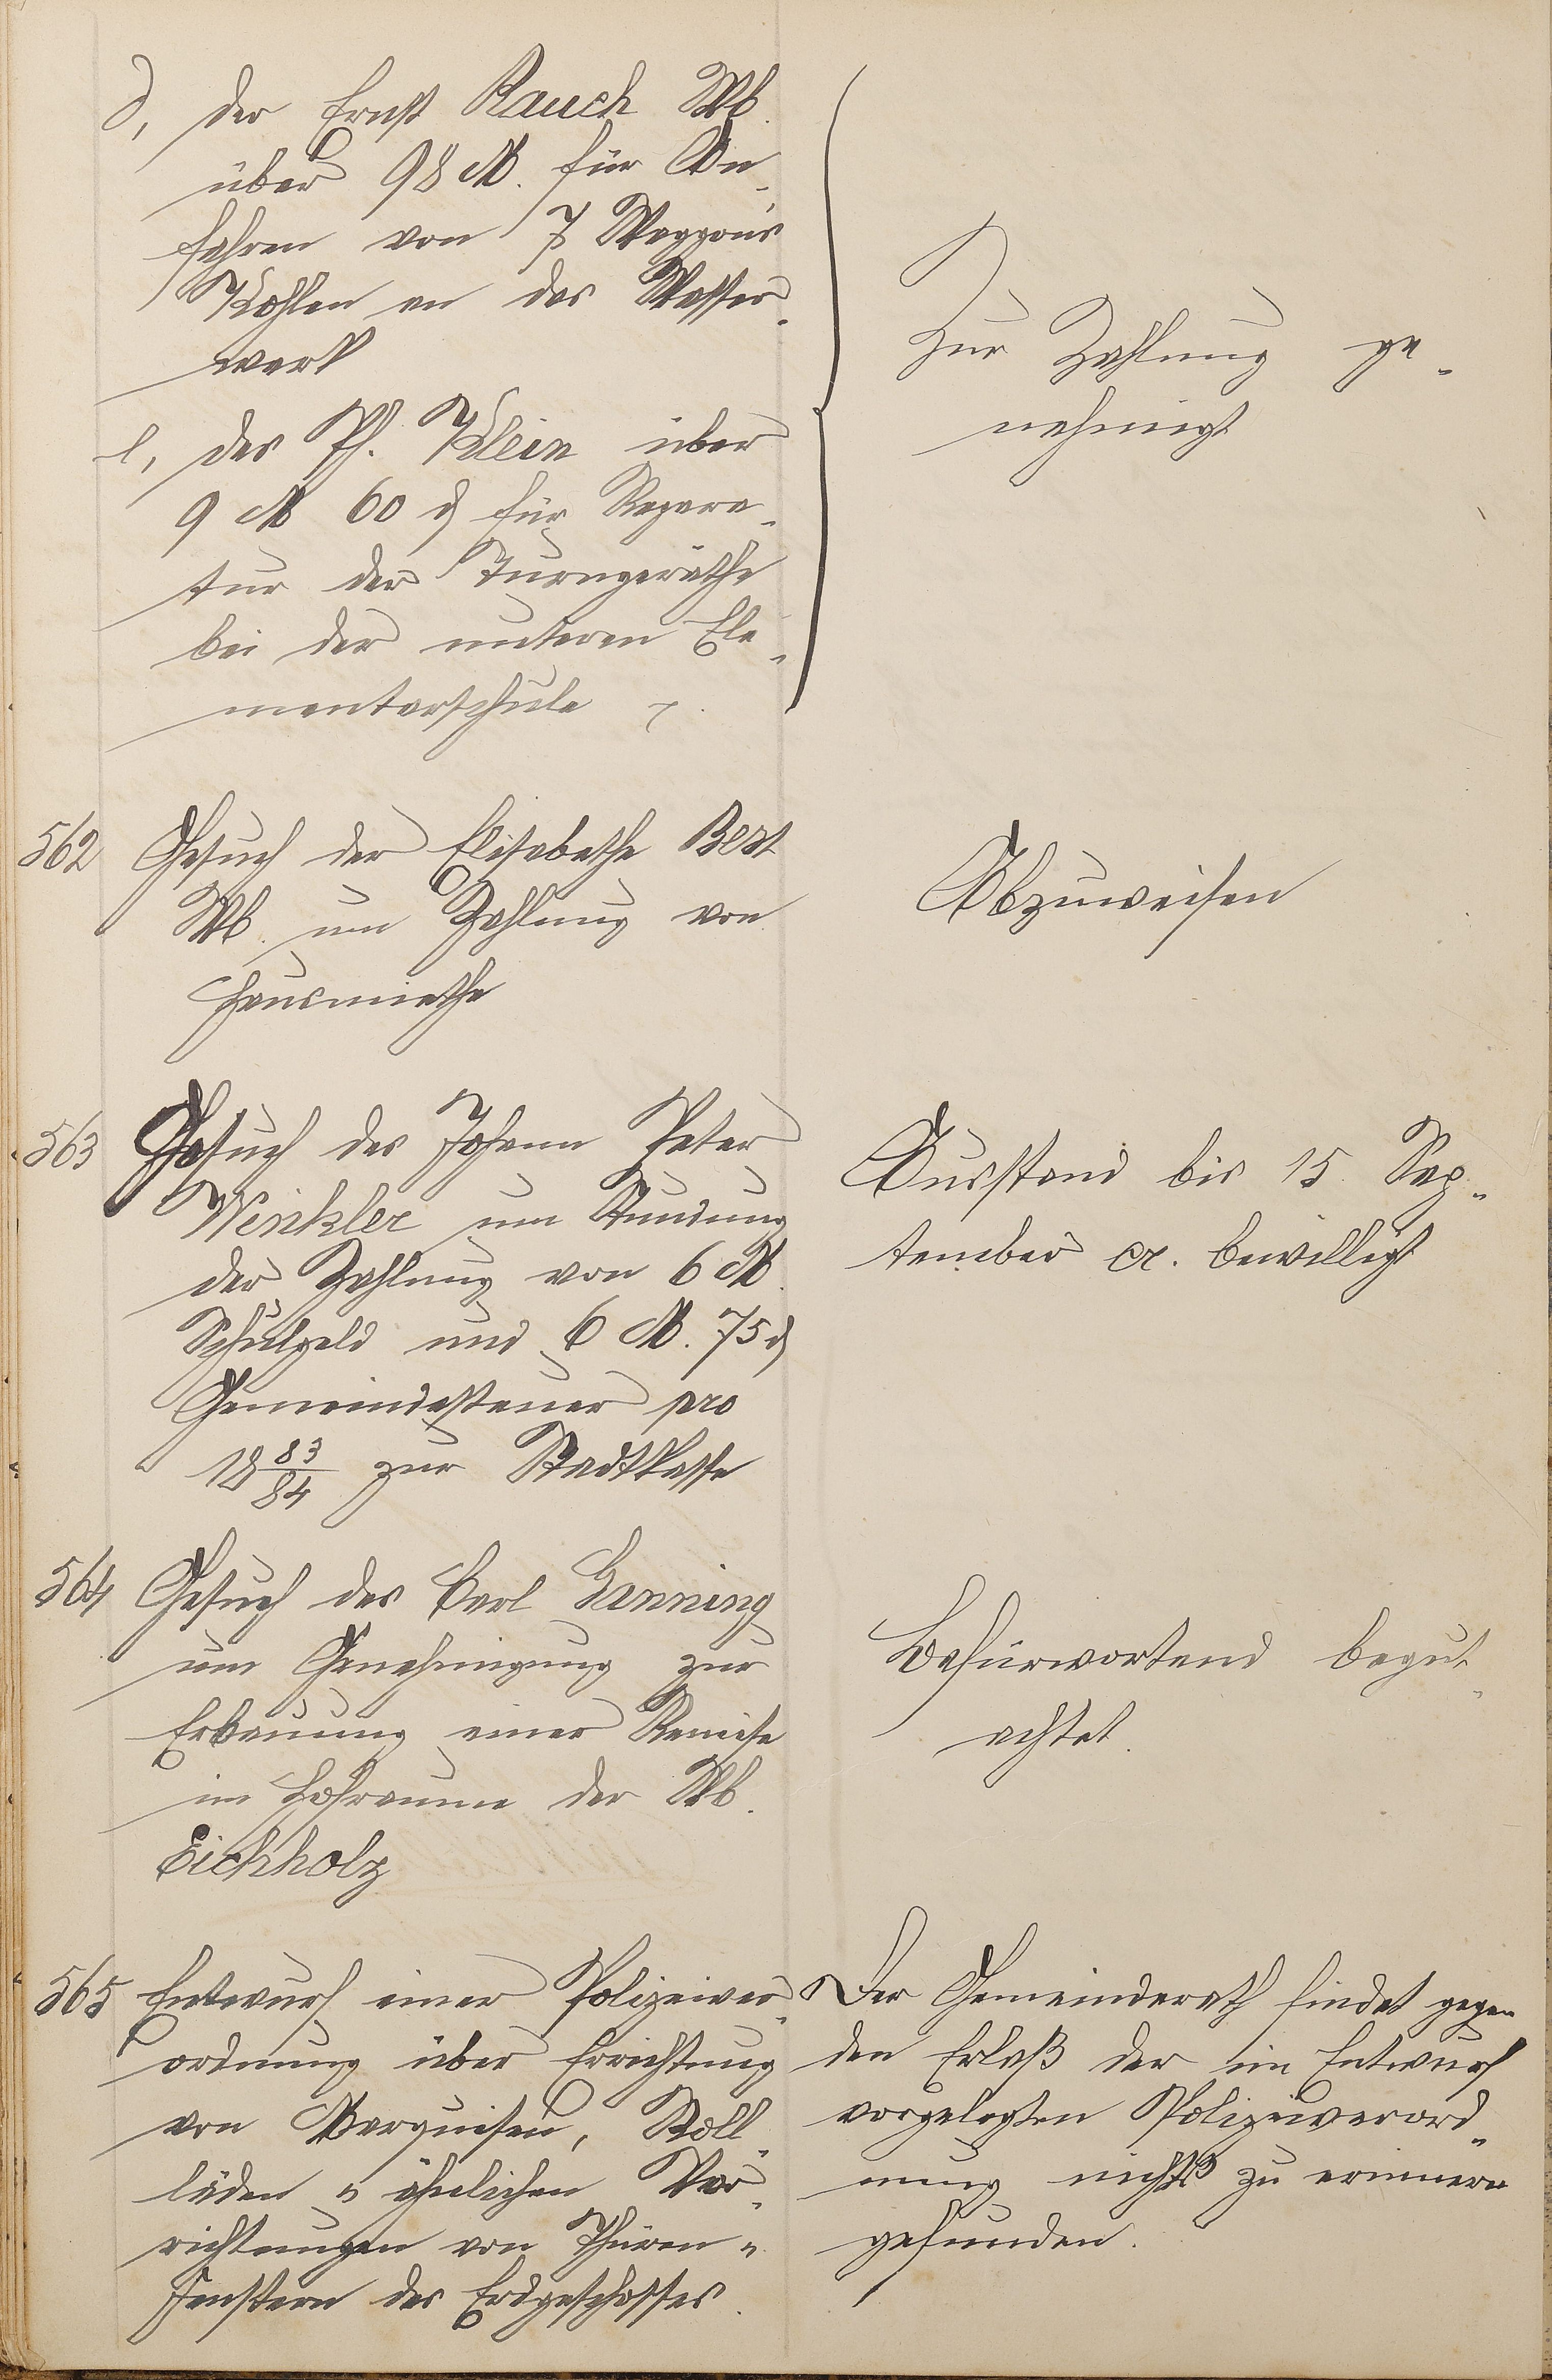 d, der Ernst Rauch Wb.
über 98 M. für An-
fahren von 7 Waggons
Kohlen an das Wasser-
werk
e, des Ph. Klein über
9 M 60 ₰ für Repara-
tur der Turngeräthe
bei der unteren Ele-
mentarschule
Zur Zahlung ge-
nehmigt
562 Gesuch der Elisabethe Best
Wb. um Zahlung von
Hausmiethe
Abzuweisen
563 Gesuch des Johann Peter
Winkler um Stundung
der Zahlung von 6 M.
Schulgeld und 6 M. 75 ₰
Gemeindesteuer pro
18 83/84 zur Stadtkasse
Ausstand bis 15 Sep-
tember cr. bewilligt
564 Gesuch des Carl Henning
um Genehmigung zur
Erbauung einer Remise
im Hofraume der Wb.
Eichholz
Befürwortend begut-
achtet.
565 Entwurf einer Polizeiver-
ordnung über Errichtung
von Marquisen, Roll-
läden u ähnlichen Vor-
richtungen von Thüren u
Fenstern des Erdgeschosses.
Der Gemeinderath findet gegen
den Erlaß der im Entwurf
vorgelegten Polizeiverord-
nung nichts zu erinnern
gefunden.